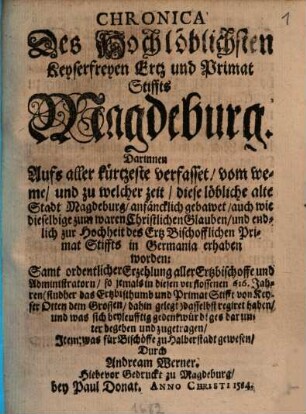 1
CHRONICA
Des Hochlöblichsten
Keyserfreyen Ertz und Primat
Stiffts
Magdeburg.
Darinnen
Auffs aller kürtzeste verfasset / vom we-
me / und zu welcher zeit / diese löbliche alte
Stadt Magdeburg / anfäncklich gebawet / auch wie
dieselbige zum waren Christlichen Glauben / und end-
lich zur Hochheit des Ertz Bischofflichen Pri-
mat Stiffts in Germania erhaben
worden:
Samt ordentlicher Erzehlung aller Ertzbischoffe und
Administratorn / so jemals in diesen verflossenen 616. Jah-
ren / sindher das Ertzbisthumb und Primat Stifft von Key-
ser Otten dem Grossen / dahin gelegt / dasselbst regiret haben /
und was sich beyleufftig gedenckwirdiges dar un-
ter begeben und zugetragen /
Item: was für Bischöffe zu Halberstadt gewesen /
Durch
Andream Werner.
Hiebevor Gedruckt zu Magdeburg /
bey Paul Donat. ANNO CHRISTI 1584.